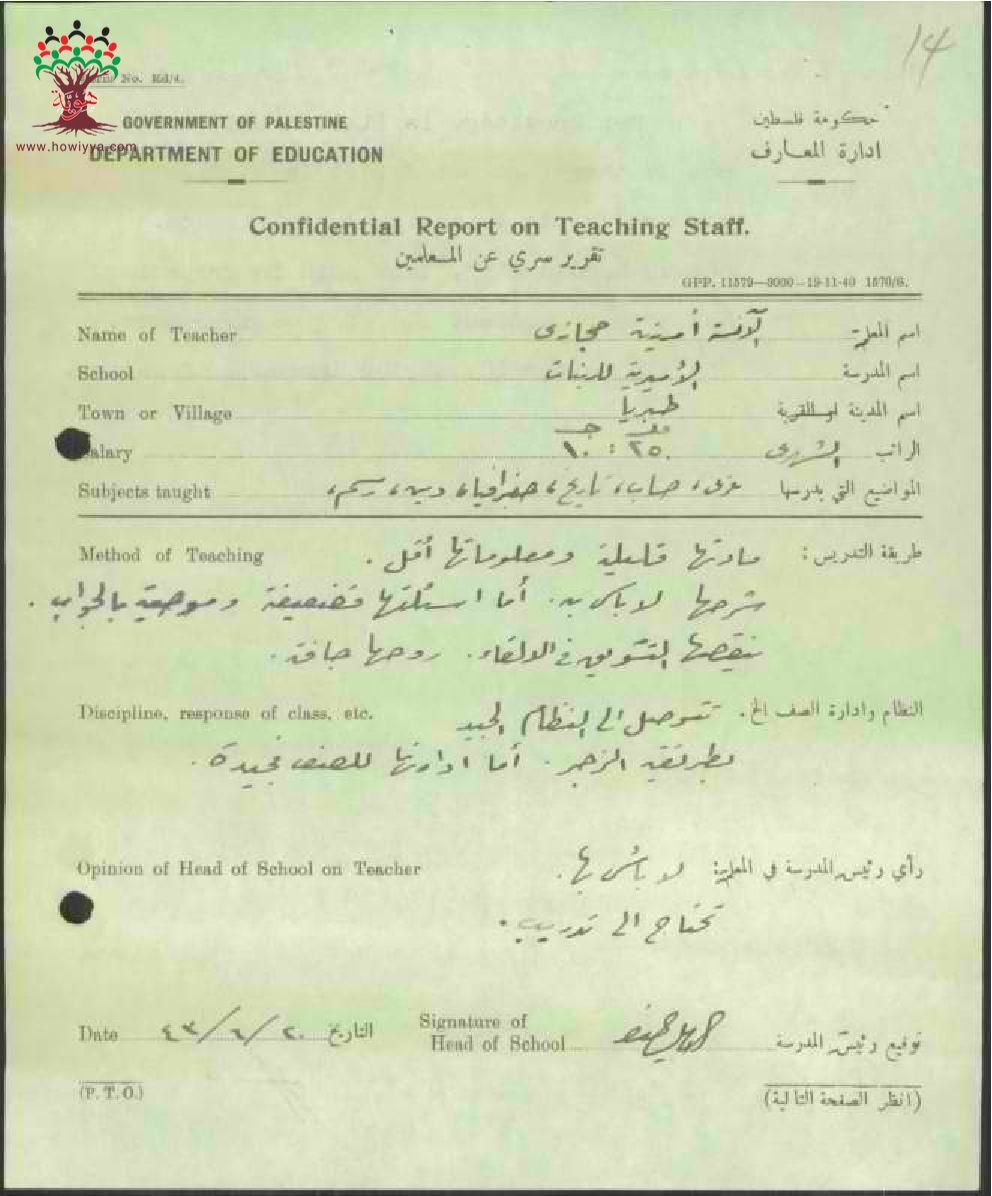 14
Form No. Ed/4.
هوية
www.howiyya.com
GOVERNMENT OF PALESTINE
حكومة فلسطين
DEPARTMENT OF EDUCATION
ادارة المعارف
Confidential Report on Teaching Staff.
تقرير سري عن المعلمين
GPP. 11579—3000—19-11-40 1570/S.
Name of Teacher الآنسة أمينة حجازي اسم المعلمة
School الأميرية للبنات اسم المدرسة
Town or Village طبريا اسم المدينة او القرية
Salary ٢٥٠ : ١٠ الشهري الراتب
Subjects taught عربي، حساب، تاريخ، جغرافيا، دين، رسم، المواضيع التي يدرسها
Method of Teaching مادتها قليلة ومعلوماتها أقل . طريقة التدريس :
شرحها لا بأس به . أما اسئلتها فضعيفة وموحية بالجواب .
ينقصها التشويق في الالقاء . روحها جافة .
Discipline, response of class, etc. تتوصل الى النظام الجيد النظام وادارة الصف الخ.
بطريقة الزجر . أما ادارتها للصف فجيدة .
Opinion of Head of School on Teacher لا بأس بها . رأي رئيس المدرسة في المعلمة:
تحتاج الى تدريب .
Date ٢٠/٦/٤٣ التاريخ Signature of Head of School توقيع رئيس المدرسة
(P. T. O.) (انظر الصفحة التالية)